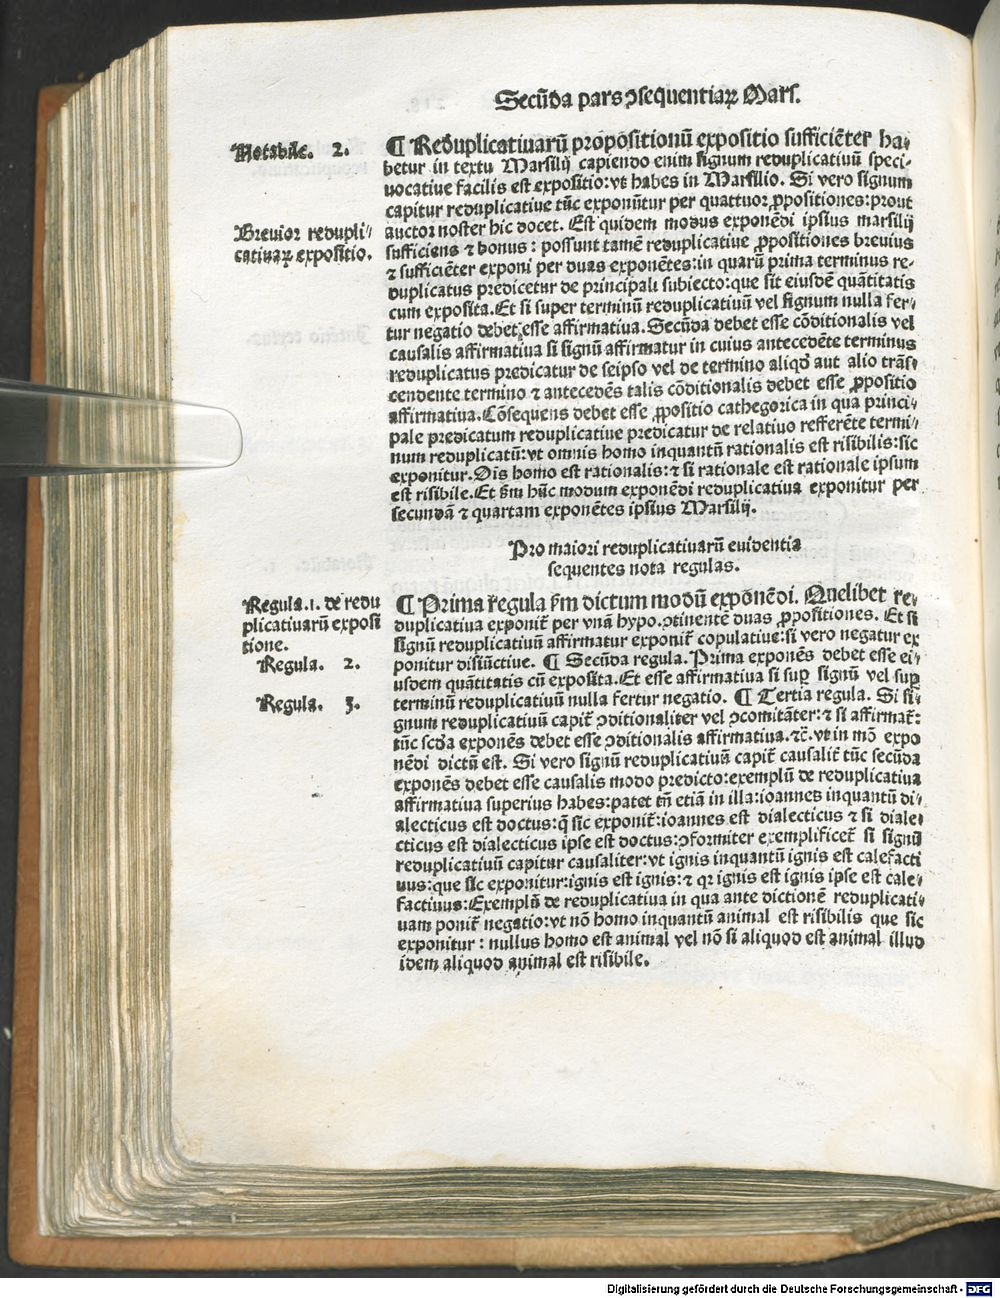 Secūda pars ↄsequentiaꝝ Mars.
Notabile. 2.
¶ Reduplicatiuarū propositionū expositio sufficiēter ha⸗
betur in textu Marsilij capiendo enim signum reduplicatiuū speci⸗
uocatiue facilis est expositio: vt habes in Marsilio. Si vero signum
capitur reduplicatiue tūc exponūtur per quattuor ꝓpositiones: prout
Breuior redupli⸗
catiuaꝝ expositio.
auctor noster hic docet. Est quidem modus exponēdi ipsius marsilij
sufficiens ⁊ bonus: possunt tamē reduplicatiue ꝓpositiones breuius
⁊ sufficiēter exponi per duas exponētes: in quarū prima terminus re⸗
duplicatus predicetur de principali subiecto: que sit eiusdē quātitatis
cum exposita. Et si super terminū reduplicatiuū vel signum nulla fer⸗
tur negatio debet esse affirmatiua. Secūda debet esse cōditionalis vel
causalis affirmatiua si signū affirmatur in cuius antecedēte terminus
reduplicatus predicatur de seipso vel de termino aliqđ aut alio trās⸗
cendente termino ⁊ antecedēs talis cōditionalis debet esse ꝓpositio
affirmatiua. Cōsequens debet esse ꝓpositio cathegorica in qua princi⸗
pale predicatum reduplicatiue predicatur de relatiuo refferēte termi⸗
num reduplicatū: vt omnis homo inquantū rationalis est risibilis: sic
exponitur. Oīs homo est rationalis: ⁊ si rationale est rationale ipsum
est risibile. Et s̄m hūc modum exponēdi reduplicatiua exponitur per
secundā ⁊ quartam exponētes ipsius Marsilij.
Pro maiori reduplicatiuarū euidentia
sequentes nota regulas.
Regula. 1. de redu
plicatiuarū exposi
tione.
¶ Prima regula s̄m dictum modū exponēdi. Quelibet re⸗
duplicatiua exponit̄ per vnā hypo. ↄtinentē duas ꝓpositiones. Et si
signū reduplicatiuū affirmatur exponit̄ copulatiue: si vero negatur ex
Regula. 2.
ponitur disiūctiue. ¶ Secūda regula. Prima exponēs debet esse ei⸗
usdem quātitatis cū exposita. Et esse affirmatiua si suꝑ signū vel suꝑ
Regula. 3.
terminū reduplicatiuū nulla fertur negatio. ¶ Tertia regula. Si si⸗
gnum reduplicatiuū capit̄ ↄditionaliter vel ↄcomitāter: ⁊ si affirmat̄:
tūc scđa exponēs debet esse ↄditionalis affirmatiua. ⁊c̄. vt in mō expo
nēdi dictū est. Si vero signū reduplicatiuū capit̄ causalit̄ tūc secūda
exponēs debet esse causalis modo predicto: exemplū de reduplicatiua
affirmatiua superius habes: patet tn̄ etiā in illa: ioannes inquantū di⸗
alecticus est doctus: q̄ sic exponit̄: ioannes est dialecticus ⁊ si diale⸗
cticus est dialecticus ipse est doctus: ↄformiter exemplificet̄ si signū
reduplicatiuū capitur causaliter: vt ignis inquantū ignis est calefacti
uus: que sic exponitur: ignis est ignis: ⁊ qꝛ ignis est ignis ipse est cale⸗
factiuus: Exemplū de reduplicatiua in qua ante dictionē reduplicati⸗
uam ponit̄ negatio: vt nō homo inquantū animal est risibilis que sic
exponitur: nullus homo est animal vel nō si aliquod est animal illud
idem aliquod animal est risibile.
Digitalisierung gefördert durch die Deutsche Forschungsgemeinschaft - DFG